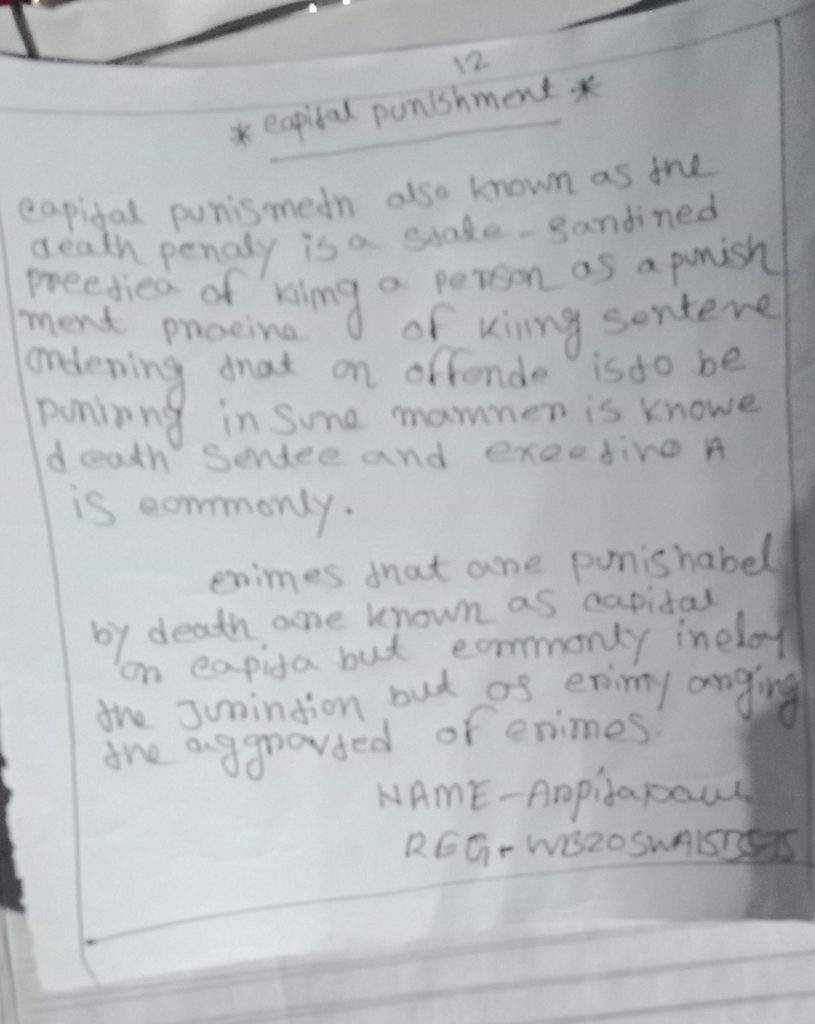 12
* capital punishment *
capital punismedn also known as the
death penaly is a state - sandined
preedica of kiing a person as a punish
ment proeine of kiing sentene
ordening that on offende is to be
puninng in sune mamnen is knowe
death sendee and exeedive A
is commonly.
crimes that are punishabel
by death are known as capital
on capita but commonly
the but os
the of crimes.
NAME - Arpita paul.
REG -